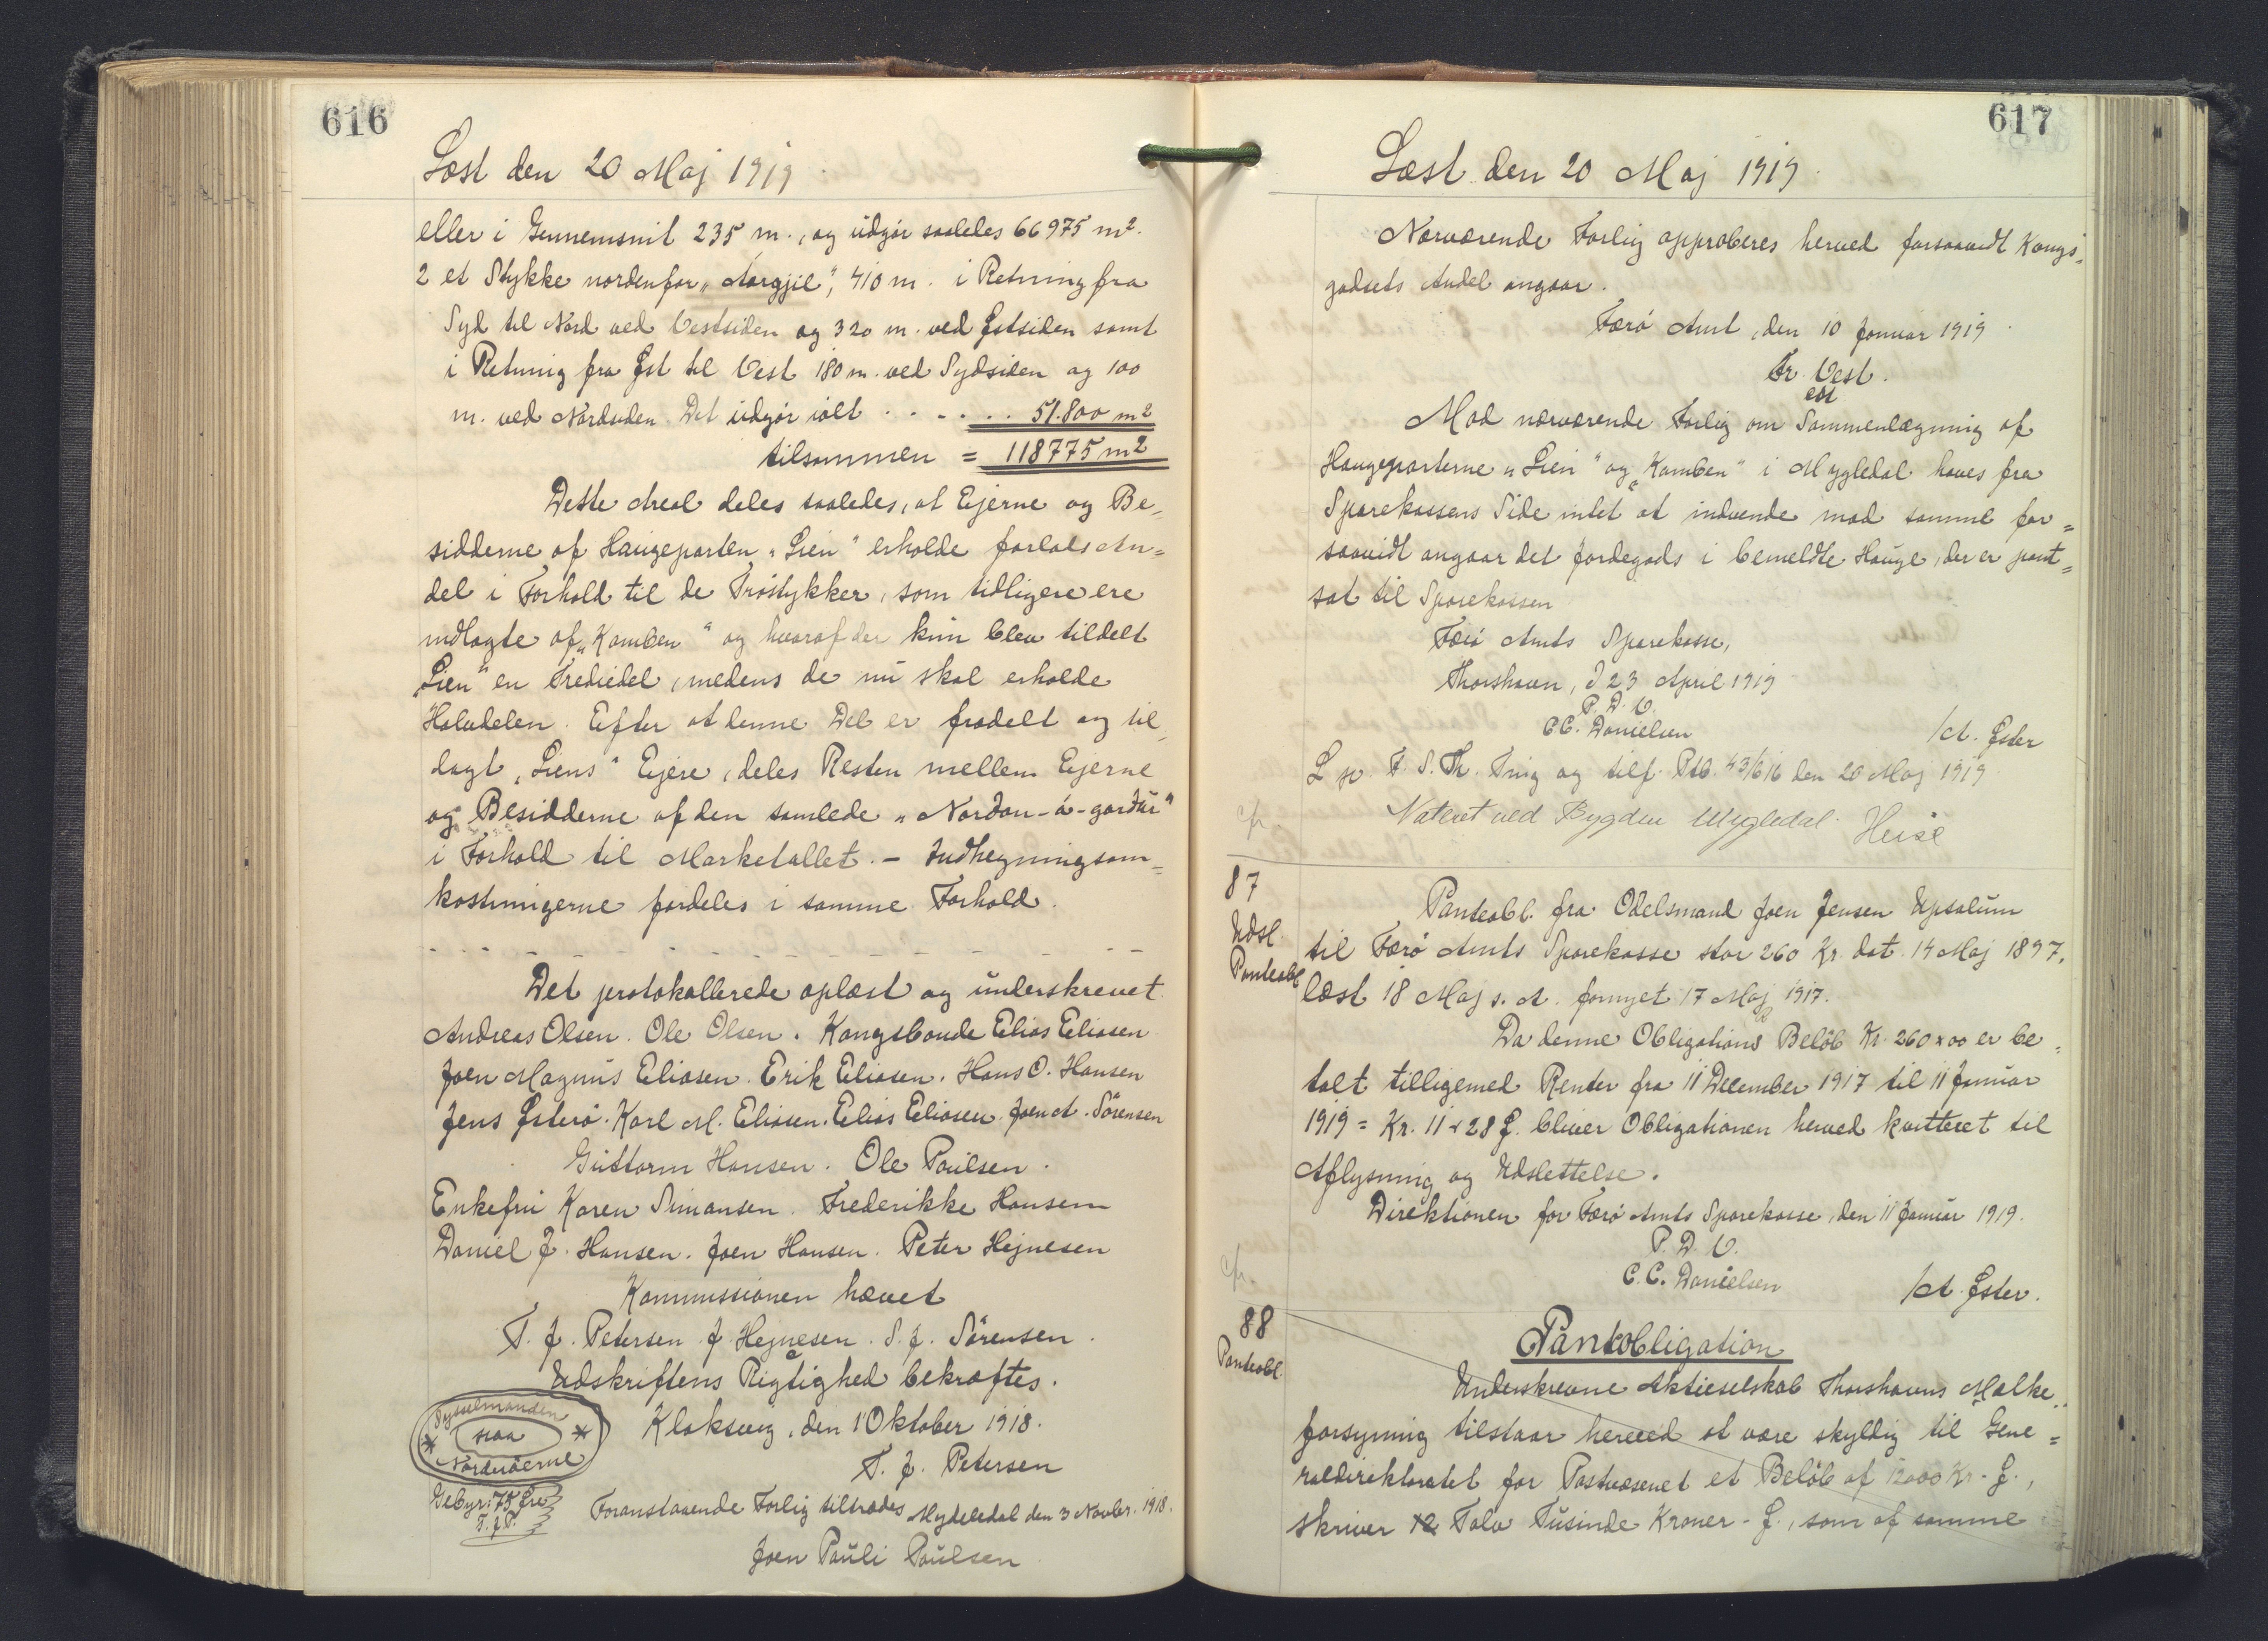 616
Læst den 20 Maj 1919
eller i Gennemsnit 235 m., og udgør saaledes 66975 m².
2 et Stykke nordenfor „Aargjil“, 410 m. i Retning fra
Syd til Nord ved Vestsiden og 320 m. ved Østsiden samt
i Retning fra Øst til Vest 180 m. ved Sydsiden og 100
m. ved Nordsiden. Det udgør ialt . . - . . . 51.800 m²
tilsammen = 118775 m²
Dette Areal deles saaledes, at Ejerne og Be-
sidderne af Haugeparten „Lien“ erholde forlods An=
del i Forhold til de Trøstykker, som tidligere ere
indlagte af „Kamben“ og hvoraf der kun blev tildelt
„Lien“ en Trediedel, medens de nu skal erholde
Halvdelen. Efter at denne Del er fradelt og til-
lagt „Liens“ Ejere, deles Resten mellem Ejerne
og Besidderne af den samlede „Nordan-á-gardur“
i Forhold til Marketallet. - Indhegningsom=
kostningerne fordeles i samme Forhold.
Det protokollerede oplæst og underskrevet.
Andreas Olsen. Ole Olsen. Kongsbonde Elias Eliasen
Joen Magnus Eliasen. Erik Eliasen. Hans O. Hansen
Jens Østerø. Karl M. Eliasen. Elias Eliasen. Joen A. Sörensen
Guttorm Hansen. Ole Poulsen.
Enkefru Karen Simonsen. Frederikke Hansen
Daniel J. Hansen. Joen Hansen. Peter Hejnesen
Kommissionen hævet
T. J. Petersen J. Hejnesen. S. J. Sörensen.
Udskriftens Rigtighed bekræftes.
Klaksvig, den 1 Oktober 1918.
T. J. Petersen
Sysselmanden
paa
Norderöerne
Gebyr: 75 Øre
T. J. P.
Foranstaaende Forlig tiltrædes Mydeledal den 3 Novbr. 1918.
Joen Pauli Poulsen
617
Læst den 20 Maj 1919
Nærværende Forlig approberes herved forsaavidt Kongs-
godsets Andel angaar.
Færø Amt, den 10 Januar 1919
Fr. Vest.
cst
Mod nærværende Forlig om Sammenlægning af
Haugeparterne „Lien“ og „Kamben“ i Mygledal haves fra
Sparekassens Side intet at indvende mod samme for=
saavidt angaar det Jordegods i bemeldte Hauge, der er pant=
sat til Sparekassen
Færø Amts Sparekasse,
Thorshavn, d 23 April 1919
P. D. V.
C.C. Danielsen
/A. Øster
L p. F. S. Th. Ting og tilf. Ptb. 43/616 den 20 Maj 1919
cfr
Noteret ved Bygden Mygledal. Heise
87
Udsl.
Panteobl
Panteobl. fra Odelsmand Joen Jensen Upsalum
til Færø Amts Sparekasse stor 260 Kr. dat. 14 Maj 1897,
læst 18 Maj s. A. fornyet 17 Maj 1917.
Da denne Obligations Beløb Kr. 260 x 00 er be-
talt tilligemed Renter fra 11 December 1917 til 11 Januar
1919 = Kr. 11 x 28 Ø. bliver Obligationen herved kvitteret til
Aflysning og Udslettelse.
Direktionen for Færø Amts Sparekasse, den 11 Januar 1919.
P. D. V.
C. C. Danielsen
/A. Øster.
cfr.
88
Panteobl.
Panteobligation
Underskrevne Aktieselskab Thorshavns Mælke-
forsyning tilstaar herved at være skyldig til Gene=
raldirektoratet for Postvæsenet et Beløb af 12000 Kr. - Ø.,
skriver 12 Tolv Tusinde Kroner - Ø., som af samme